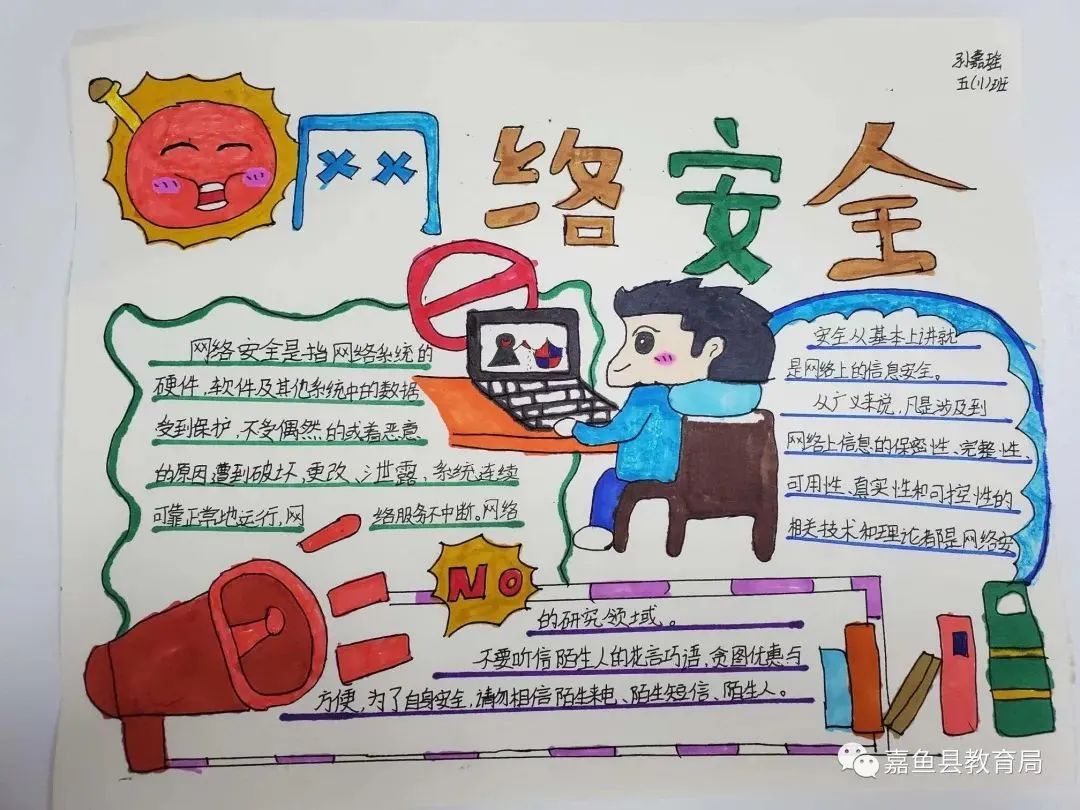 孙嘉瑶
五(1)班
网络安全
网络安全是指网络系统的
硬件,软件及其他系统中的数据
受到保护,不受偶然的或着恶意
的原因遭到破坏,更改、泄露、系统连续
可靠正常地运行,网 络服务不中断。网络
安全从基本上讲就
是网络上的信息安全。
从广义来说,凡是涉及到
网络上信息的保密性、完整性、
可用性、真实性和可控性的
相关技术和理论都是网络安
NO
的研究领域。
不要听信陌生人的花言巧语,贪图优惠与
方便,为了自身安全,请勿相信陌生来电、陌生短信、陌生人。
嘉鱼县教育局